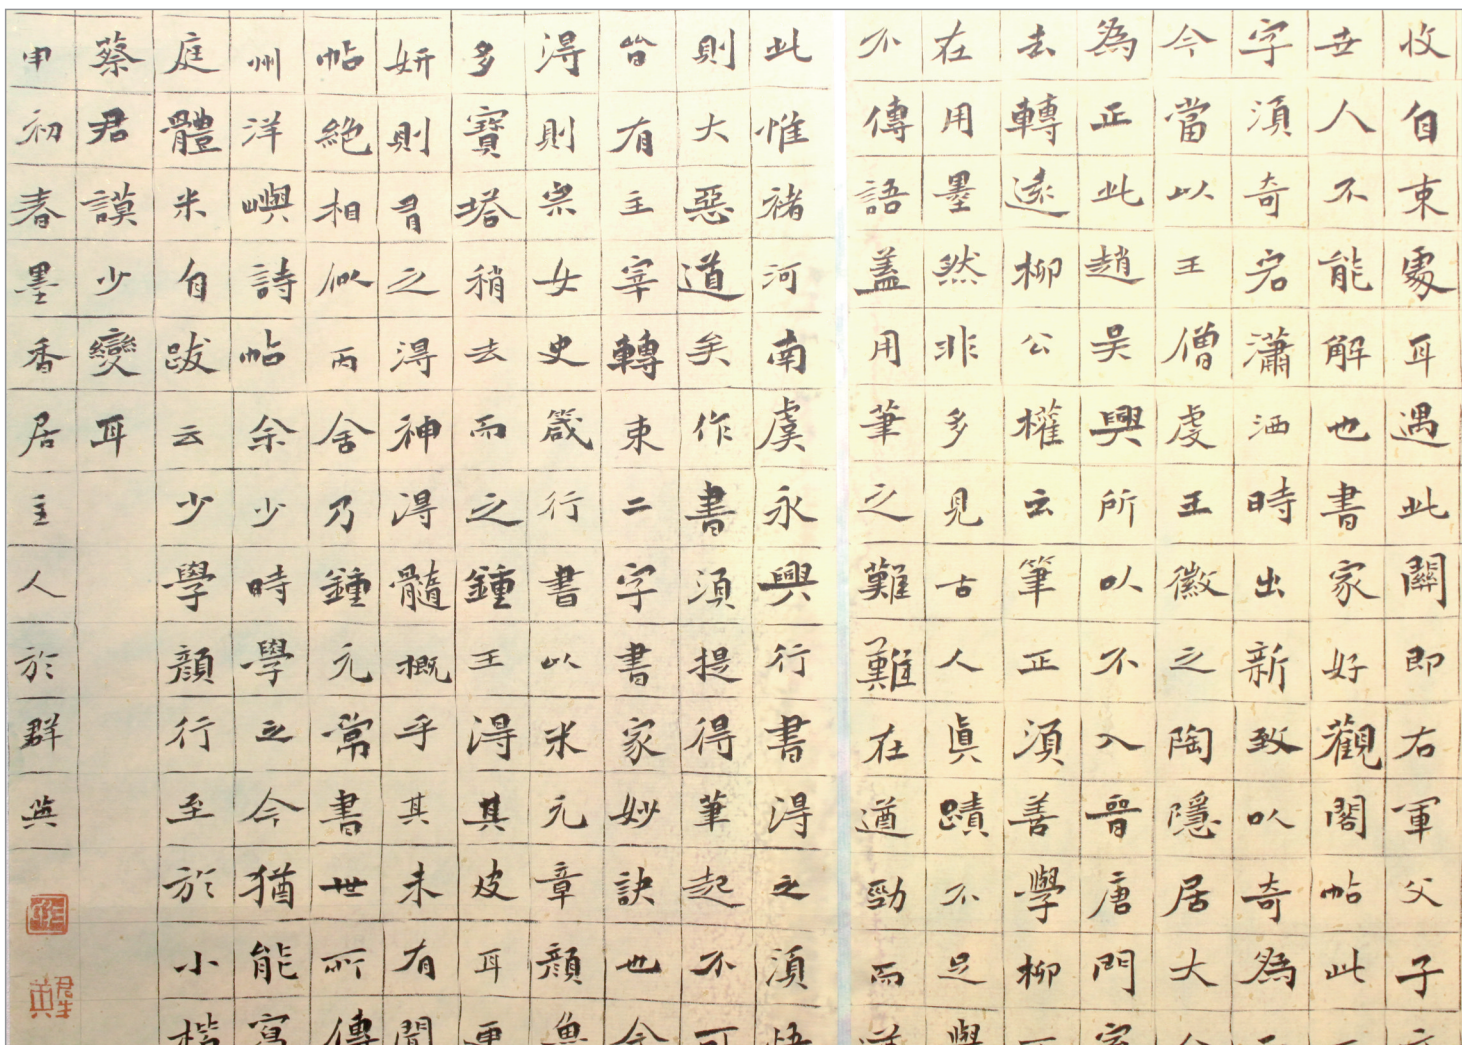 收自束處耳遇此關即右軍父子
世人不能解也書家好觀閣帖此正
字須奇宕瀟洒時出新致以奇為正
今當以王僧虔王徽之陶隱居大令
為正此趙吳興所以不入晉唐門室
去轉遠柳公權云筆正須善學柳下
在用墨然非多見古人真蹟不足與
不傳語蓋用筆之難難在遒勁而遒
此惟褚河南虞永興行書得之須悟
則大惡道矣作書須提得筆起不可
皆有主宰轉束二字書家妙訣也今
得則宗女史箴行書以米元章顏魯
多寶塔稍去而之鍾王得其皮耳更
妍則肖之得神得髓概乎其未有聞
帖絕相似丙舍乃鍾元常書世所傳
州洋嶼詩帖余少時學之今猶能寫
庭體米自跋云少學顏行至於小楷
蔡君謨少變耳
申初春墨香居主人於群英